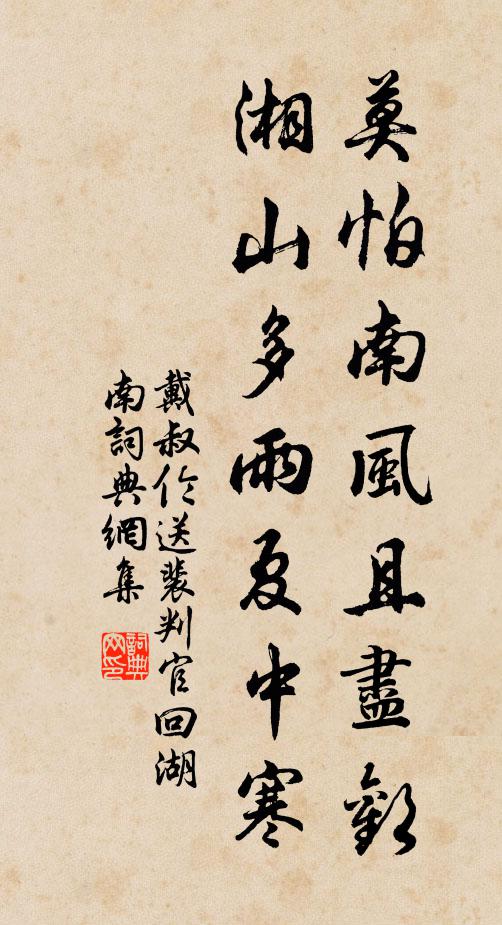 莫怕南風且盡歡
湘山多雨夏中寒
戴叔伦送裴判官回湖
南詞典網集
詞典
网印